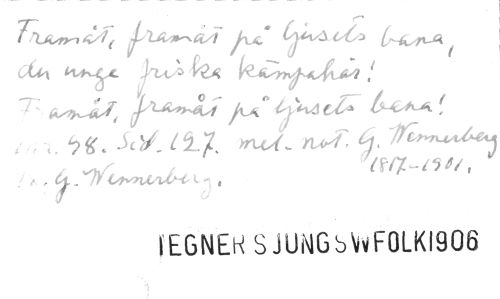 Framåt, framåt på ljusets bana,
du unga friska kämpahär!
Framåt, framåt på ljusets bana!
nr. 98. Sid. 127. mel. not. G. Wennerberg
1817-1901.
G. Wennerberg.
TEGNER SJUNGSWFOLK1906